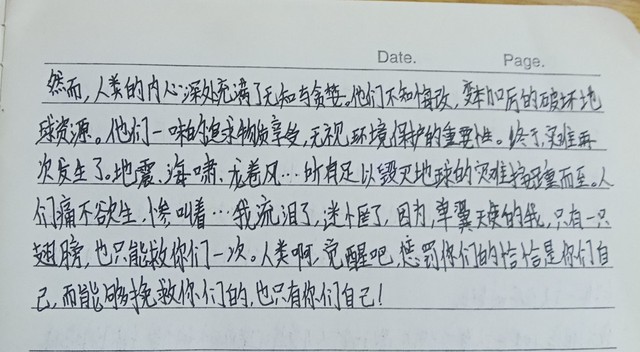 Date. Page.
然而，人类的内心深处充满了无知与贪婪。他们不知悔改，变本加厉的破坏地
球资源。他们一味的追求物质享受，无视环境保护的重要性。终于，灾难再
次发生了。地震、海啸、龙卷风…所有足以毁灭地球的灾难接踵而至。人
们痛不欲生，惨叫着…我流泪了，迷惘了，因为，单翼天使的我，只有一只
翅膀，也只能救你们一次。人类啊，觉醒吧，惩罚你们的恰恰是你们自
己，而能够挽救你们的，也只有你们自己！